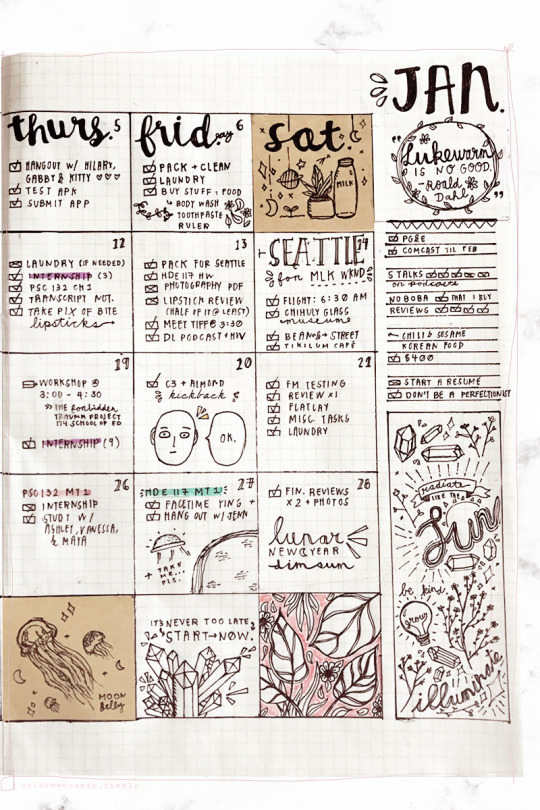 JAN.
thurs. 5
HANGOUT W/ HILARY,
GABBY & KITTY ♡♡♡
TEST APK
SUBMIT APP
friday 6
PACK + CLEAN
LAUNDRY
BUY STUFF: FOOD
BODY WASH
TOOTHPASTE
RULER
sat.
MILK
"Lukewarm
IS NO GOOD."
- Roald
Dahl
12
LAUNDRY (IF NEEDED)
INTERNSHIP (3)
PSC 132 CH1
TRANSCRIPT NUT.
TAKE PIX OF BITE
lipsticks
13
PACK FOR SEATTLE
HDE 117 HW
PHOTOGRAPHY PDF
LIPSTICK REVIEW
(HALF OF IT @ LEAST)
MEET TIFF @ 3:30
DL PODCAST + HIV
14
SEATTLE
for MLK WKND
FLIGHT: 6:30 AM
CHIHULY GLASS
museum
STREET
CAFÉ
PG&E
COMCAST TIL FEB
5 TALKS
on podcasts
NO BOBA THAT I BUY
REVIEWS
CHILI & SESAME
KOREAN FOOD
$400
START A RESUME
DON'T BE A PERFECTIONIST
19
WORKSHOP @
3:00 - 4:30
THE forbidden
TRAUMA PROJECT
174 SCHOOL OF ED
INTERNSHIP (9)
20
C3 + ALMOND
kickback
OK.
21
FM TESTING
REVIEW X1
FLATLAY
MISC. TASKS
LAUNDRY
26
PSC 132 MT 1
INTERNSHIP
STUDY W/
ASHLEY, VANESSA,
& MAIA
27
HDE 117 MT 1
FACETIME YING +
HANG OUT W/ JENN
TAKE
ME...
PLS.
28
FIN. REVIEWS
X2 + PHOTOS
lunar
NEW YEAR
dim sum
radiate
LIKE THE
Sun
be kind
grow
illuminate
MOON
Jelly
IT'S NEVER TOO LATE
START NOW.
colormecosmic.tumblr